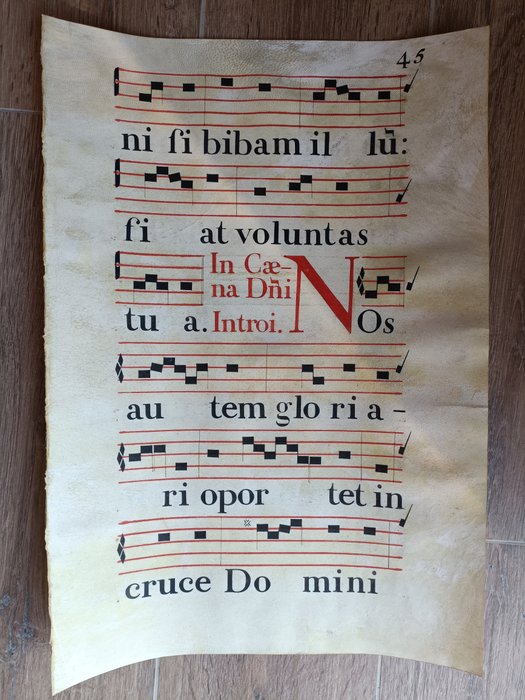 45
ni ſi bibam il lū:
fi at voluntas
tu a. In Cæ-
na Dn̄i
Introi. NOs
au tem glo ri a-
ri opor tet in
cruce Do mini